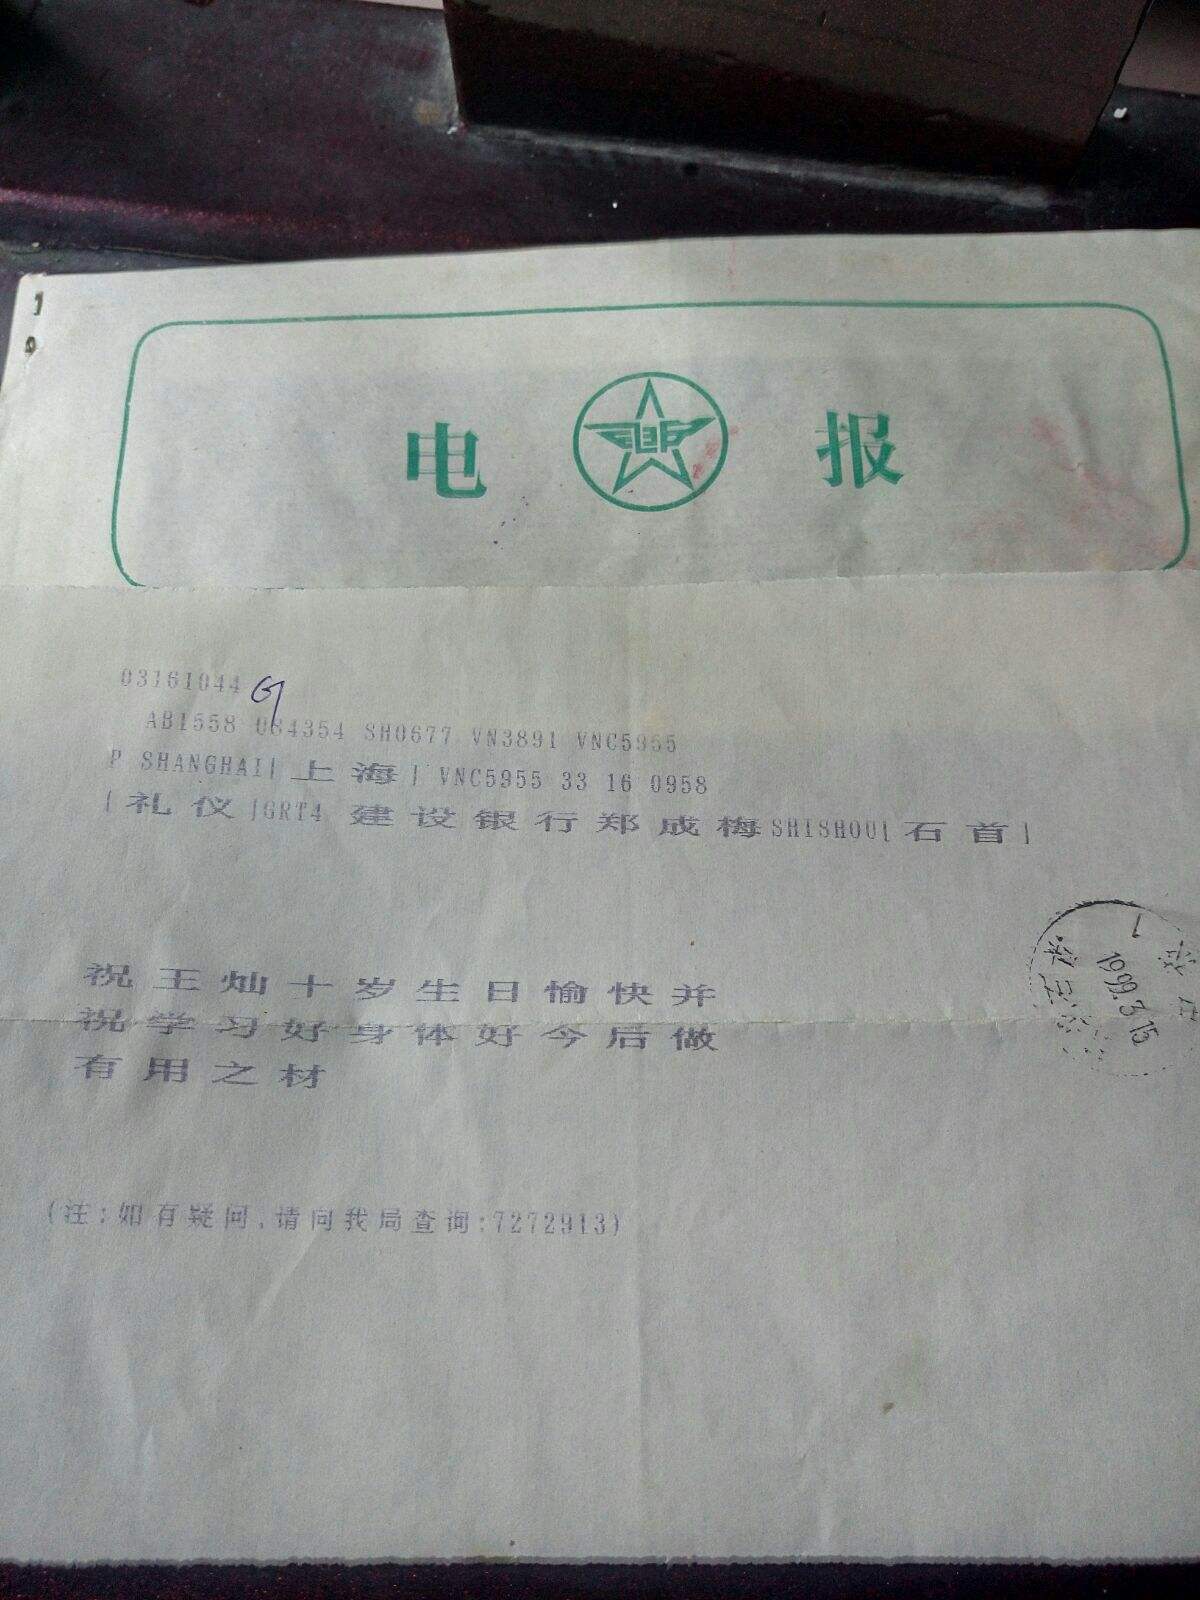 电 报
03161044
AB1558 064354 SH0677 VN3891 VNC5955
P SHANGHAI[上海] VNC5955 33 16 0958
[礼仪]GRT4 建设银行郑成梅SHISHOU[石首]
祝王灿十岁生日愉快并
祝学习好身体好今后做
有用之材
1999.3.15
(注:如有疑问,请向我局查询:7272913)